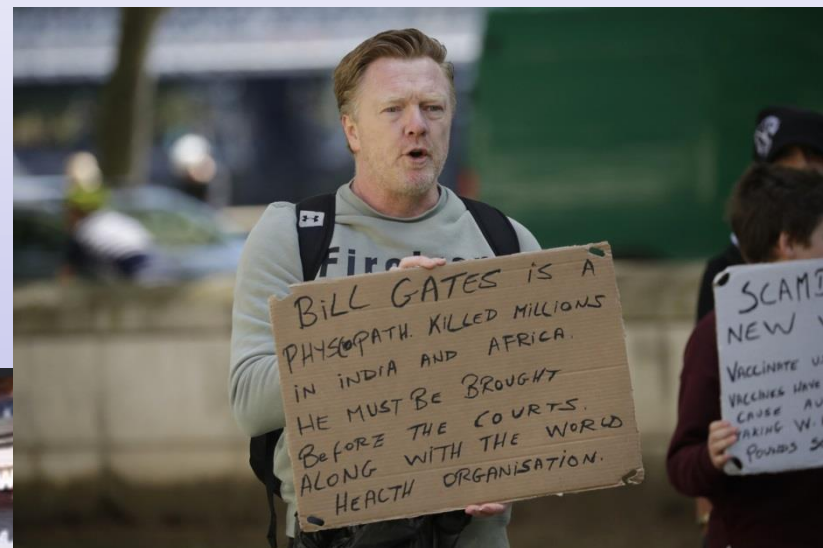 BILL GATES IS A
PHYSCOPATH. KILLED MILLIONS
IN INDIA AND AFRICA.
HE MUST BE BROUGHT
BEFORE THE COURTS.
ALONG WITH THE WORLD
HEALTH ORGANISATION.
NEW
VACCINATE
VACCINES HAVE
CAUSE
POUNDS